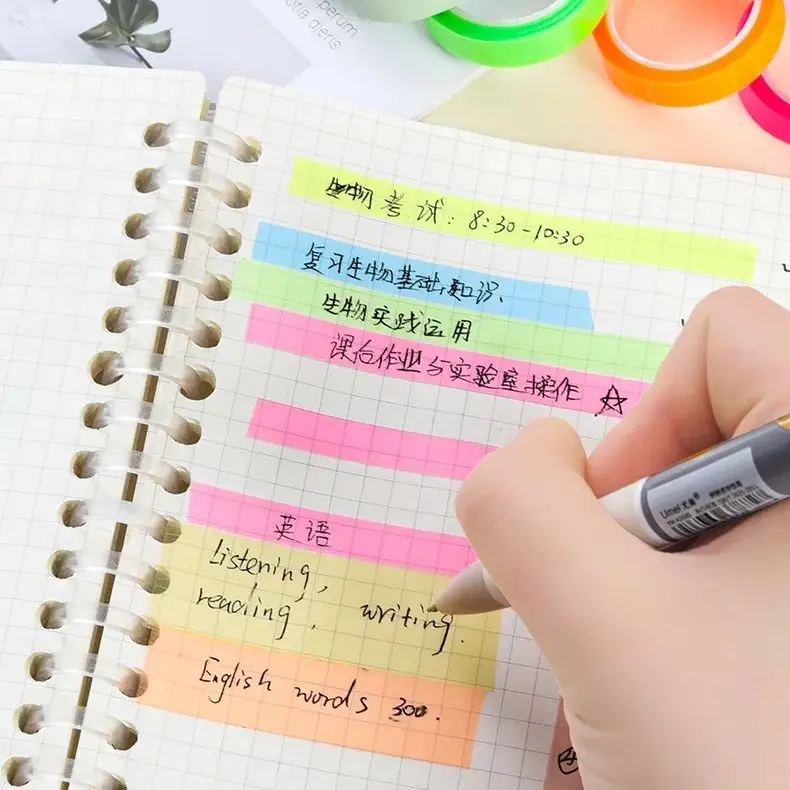 perum
otia dieris
生物考试：8:30-10:30
复习生物基础知识、
生物实践运用
课后作业与实验室操作 ☆
英语
Listening,
reading, writing.
English words 300.
Umei